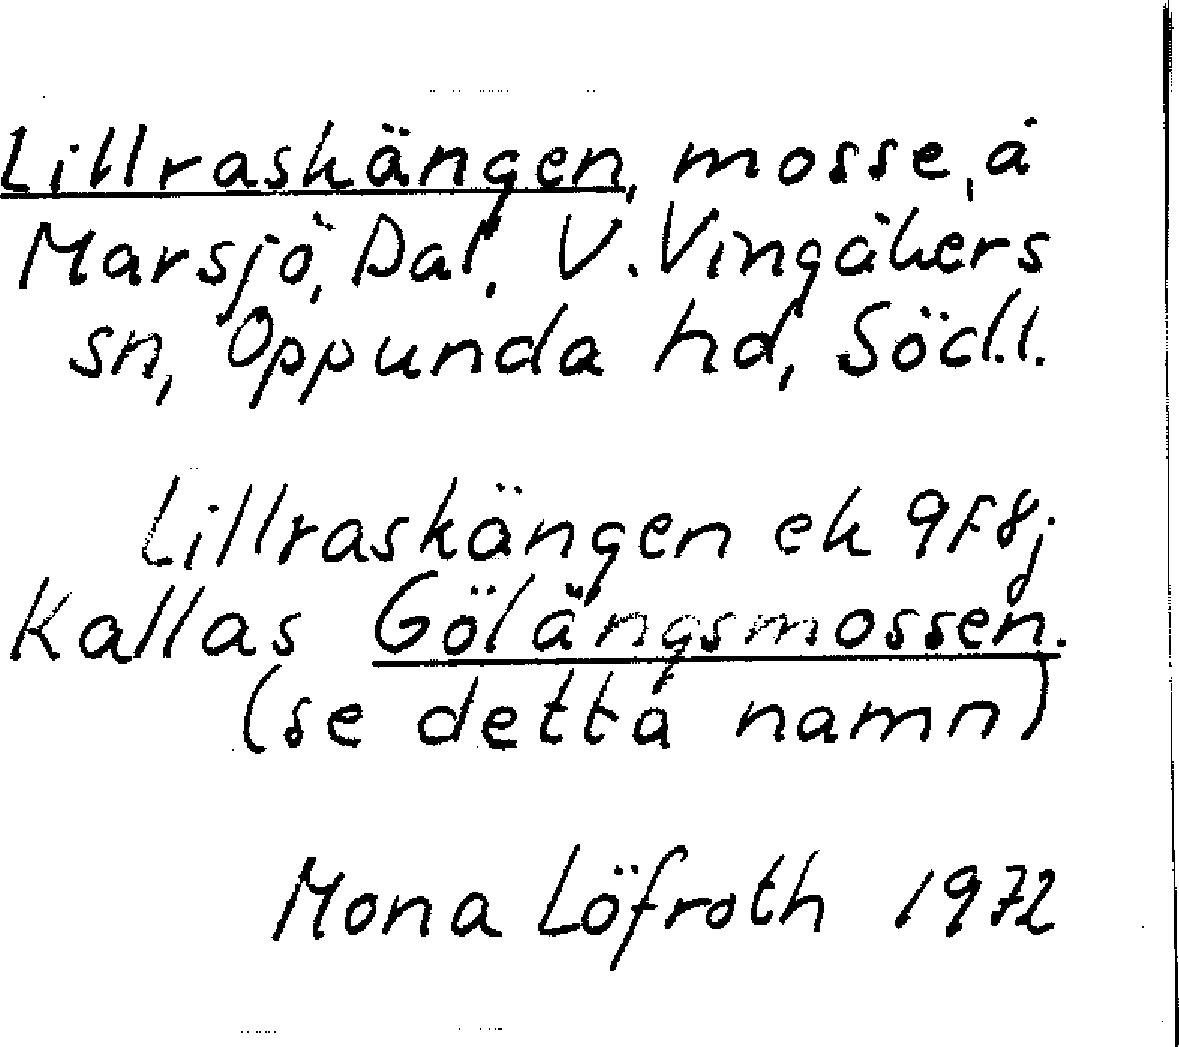 Lillraskängen, mosse, å
Marsjö, Dal, V. Vingåkers
sn, Oppunda hd, Södl.
Lillraskängen ek 9F8j
Kallas Gölängsmossen.
(se detta namn)
Mona Löfroth 1972